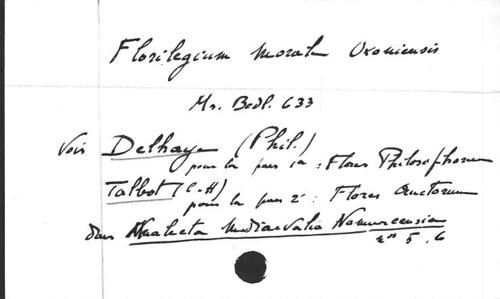 Florilegium Morale Oxoniensis
Ms. Bodl. 633
Voir Delhaye (Phil.)
pour la pars 1a : Flores Philosophorum
Talbot (C-H)
pour la pars 2a : Flores Auctorum
dans Analecta Mediaevalia Namurcensia
nos 5, 6